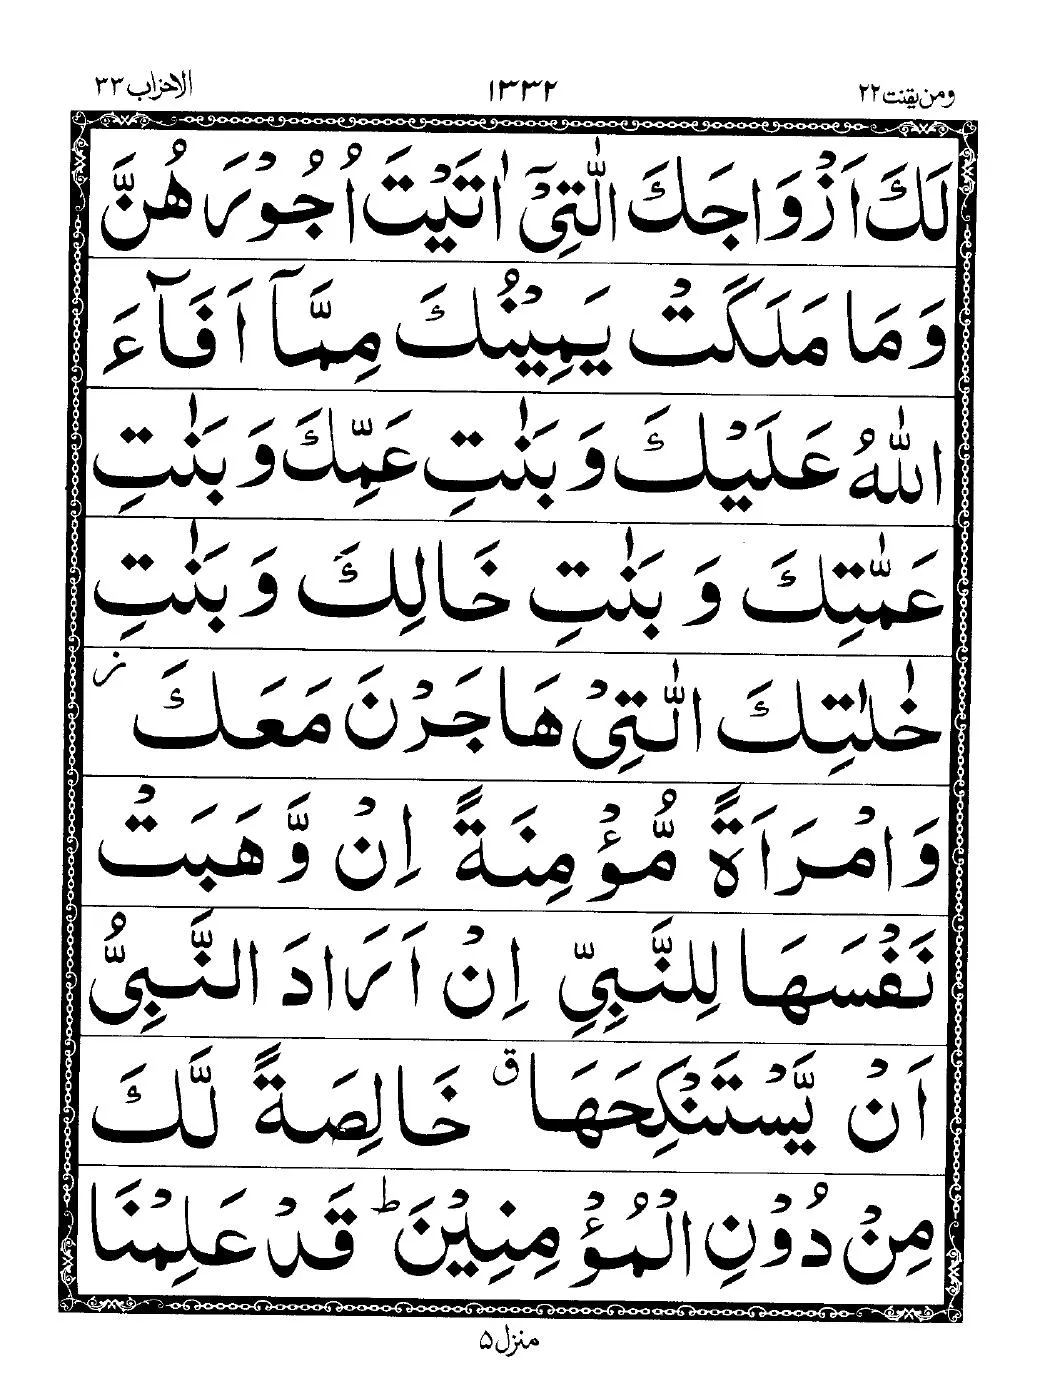 ومن یقنت ۲۲ ۱۳۳۲ الاحزاب ۳۳
لَكَ اَزْوَاجَكَ الّٰتِیْۤ اٰتَیْتَ اُجُوْرَهُنَّ
وَمَا مَلَكَتْ یَمِیْنُكَ مِمَّاۤ اَفَآءَ
اللّٰهُ عَلَیْكَ وَبَنٰتِ عَمِّكَ وَبَنٰتِ
عَمّٰتِكَ وَبَنٰتِ خَالِكَ وَبَنٰتِ
خٰلٰتِكَ الّٰتِیْ هَاجَرْنَ مَعَكَ ز
وَامْرَاَةً مُّؤْمِنَةً اِنْ وَّهَبَتْ
نَفْسَهَا لِلنَّبِیِّ اِنْ اَرَادَ النَّبِیُّ
اَنْ یَّسْتَنْكِحَهَا ق خَالِصَةً لَّكَ
مِنْ دُوْنِ الْمُؤْمِنِیْنَ ط قَدْ عَلِمْنَا
منزل ۵